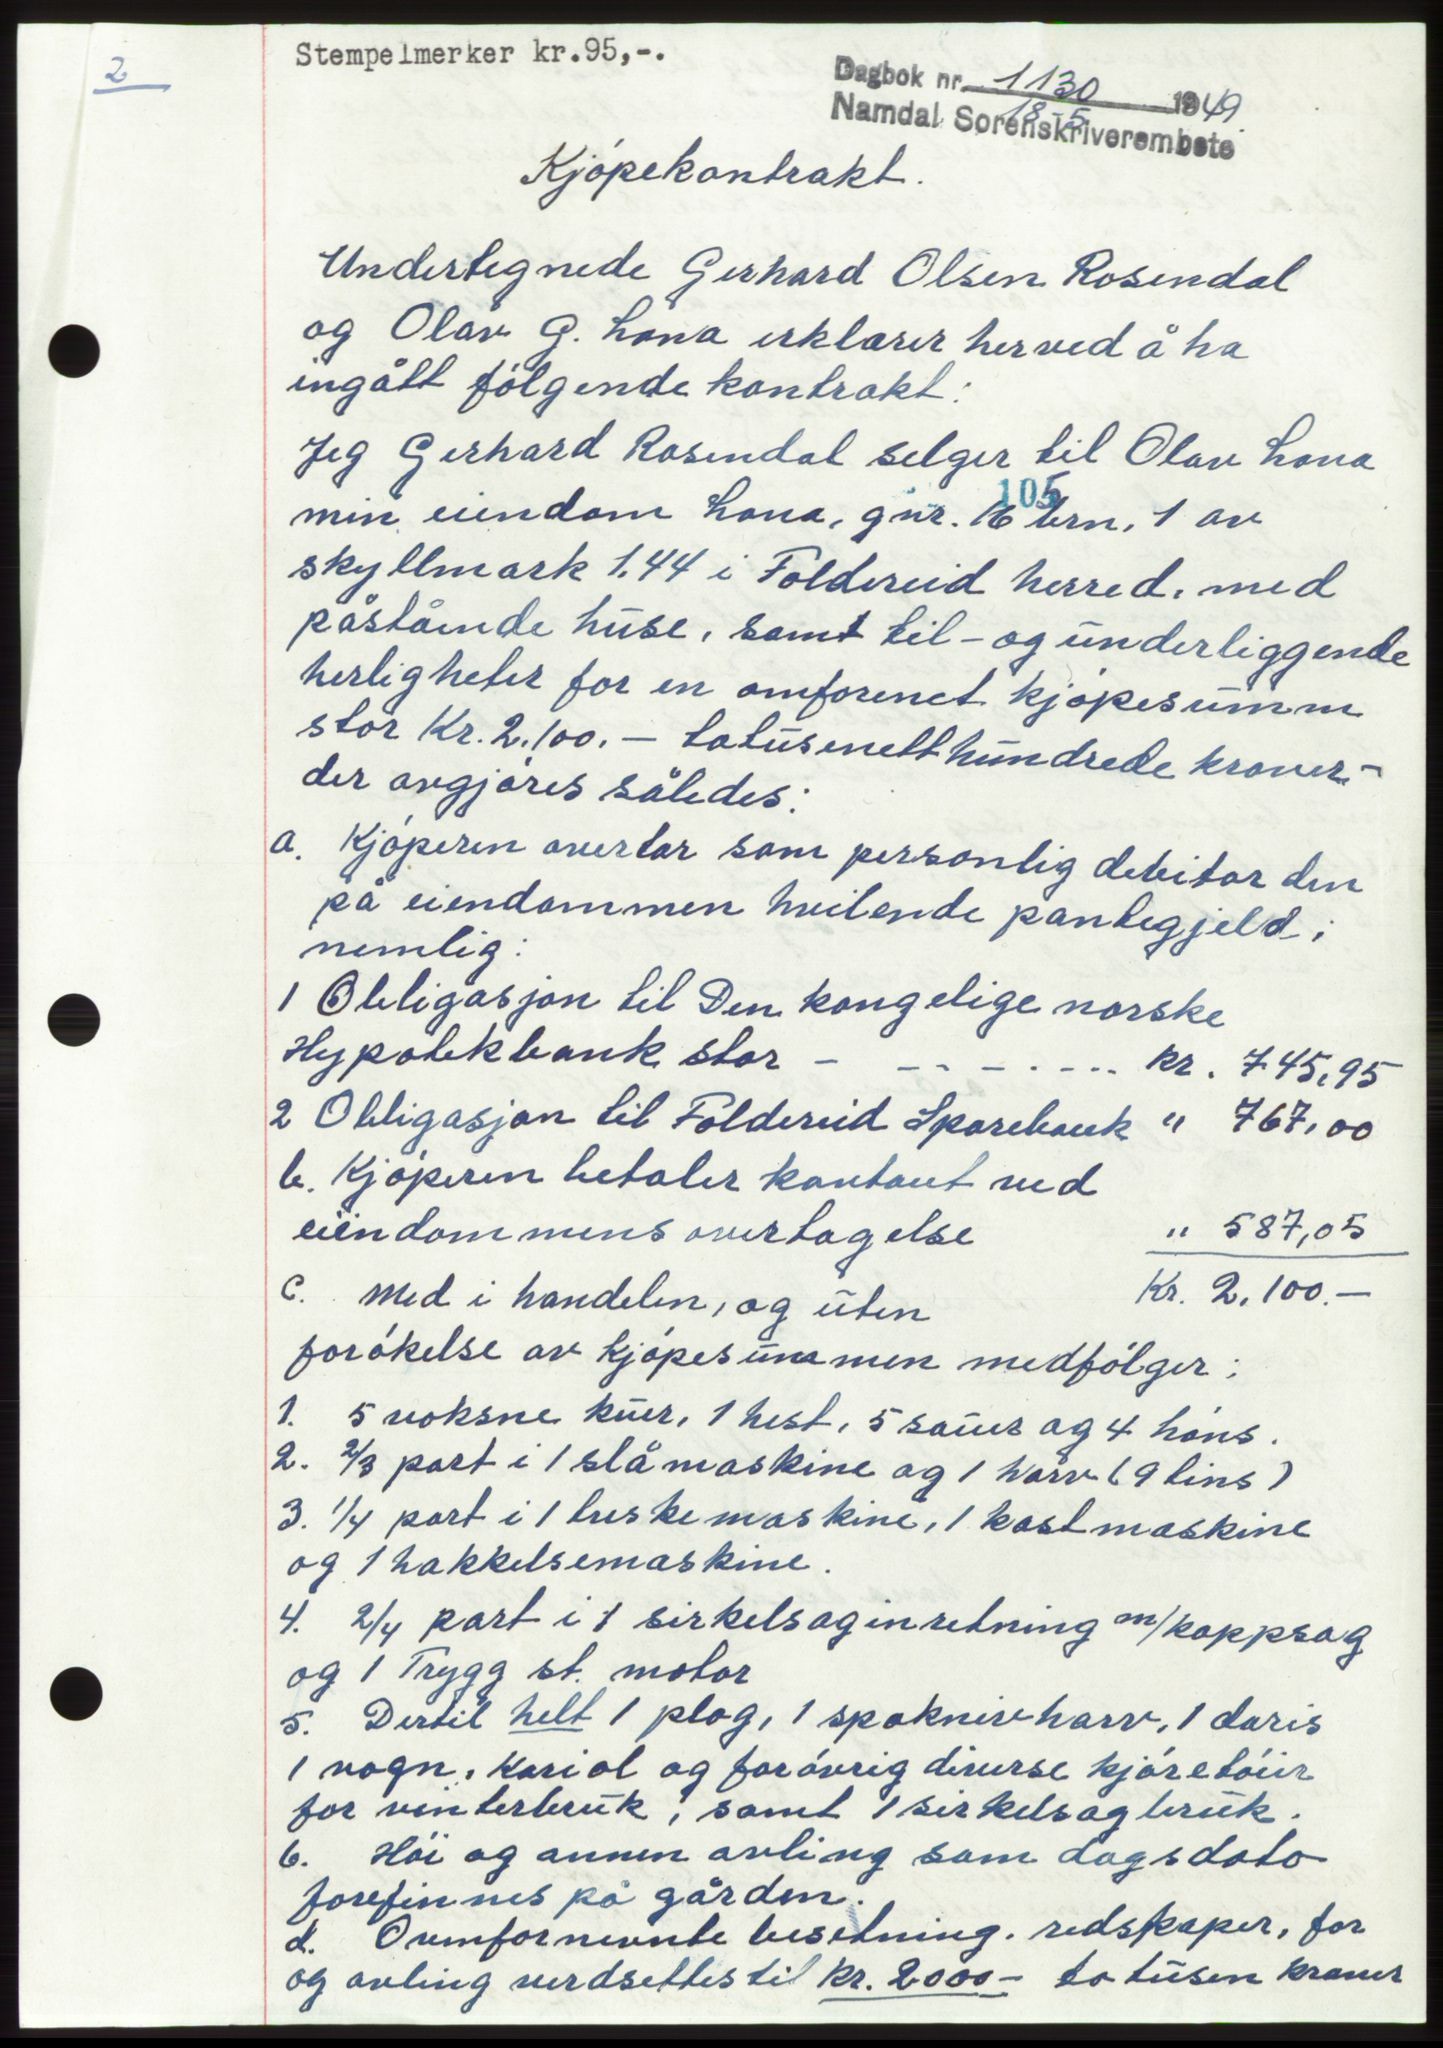 2
Stempelmerker kr.95,-.
Dagbok nr. 1130 1949
18-5
Namdal Sorenskriverembete
Kjöpekontrakt.
Undertegnede Gerhard Olsen Rosendal
og Olav G. Lona erklærer herved å ha
ingått følgende kontrakt:
Jeg Gerhard Rosendal selger til Olav Lona
105
min eiendom Lona, gnr. 16 brn. 1 av
skyllmark 1.44 i Foldereid herred, med
påstående huse, samt til- og underliggende
herligheter for en omforenet kjöpesumm
stor Kr. 2.100.- totusenetthundrede kroner-
der avgjöres således:
a. Kjöperen overtar som personlig debitor den
på eiendommen hvilende pantegjeld;
nemlig:
1 Obligasjon til Den kongelige norske
Hypotekbank stor - - - - - - - kr. 745,95
2 Obligasjon til Foldereid Sparebank " 767,00
b. Kjöperen betaler kontant ved
eiendommens overtagelse " 587,05
Kr. 2.100.-
c. Med i handelen, og uten
forökelse av kjöpesummen medfölger:
1. 5 voksne kuer, 1 hest, 5 sauer og 4 höns.
2. 2/3 part i 1 slåmaskine og 1 harv (9 tins)
3. 1/4 part i 1 treskemaskine, 1 kastmaskine
og 1 hakkelsemaskine.
4. 2/4 part i 1 sirkelsaginretning m/kappsag
og 1 Trygg st. motor
5. Dertil helt 1 plog, 1 spaknivharv, 1 doris
1 vogn, kariol og forövrig diverse kjöretöier
for vinterbruk, samt 1 sirkelsagbruk.
6. Höi og annen avling som dagsdato
forefinnes på gården.
d. Ovenfornevnte besetning, redskaper, for
og avling verdsettes til kr. 2000- to tusen kroner